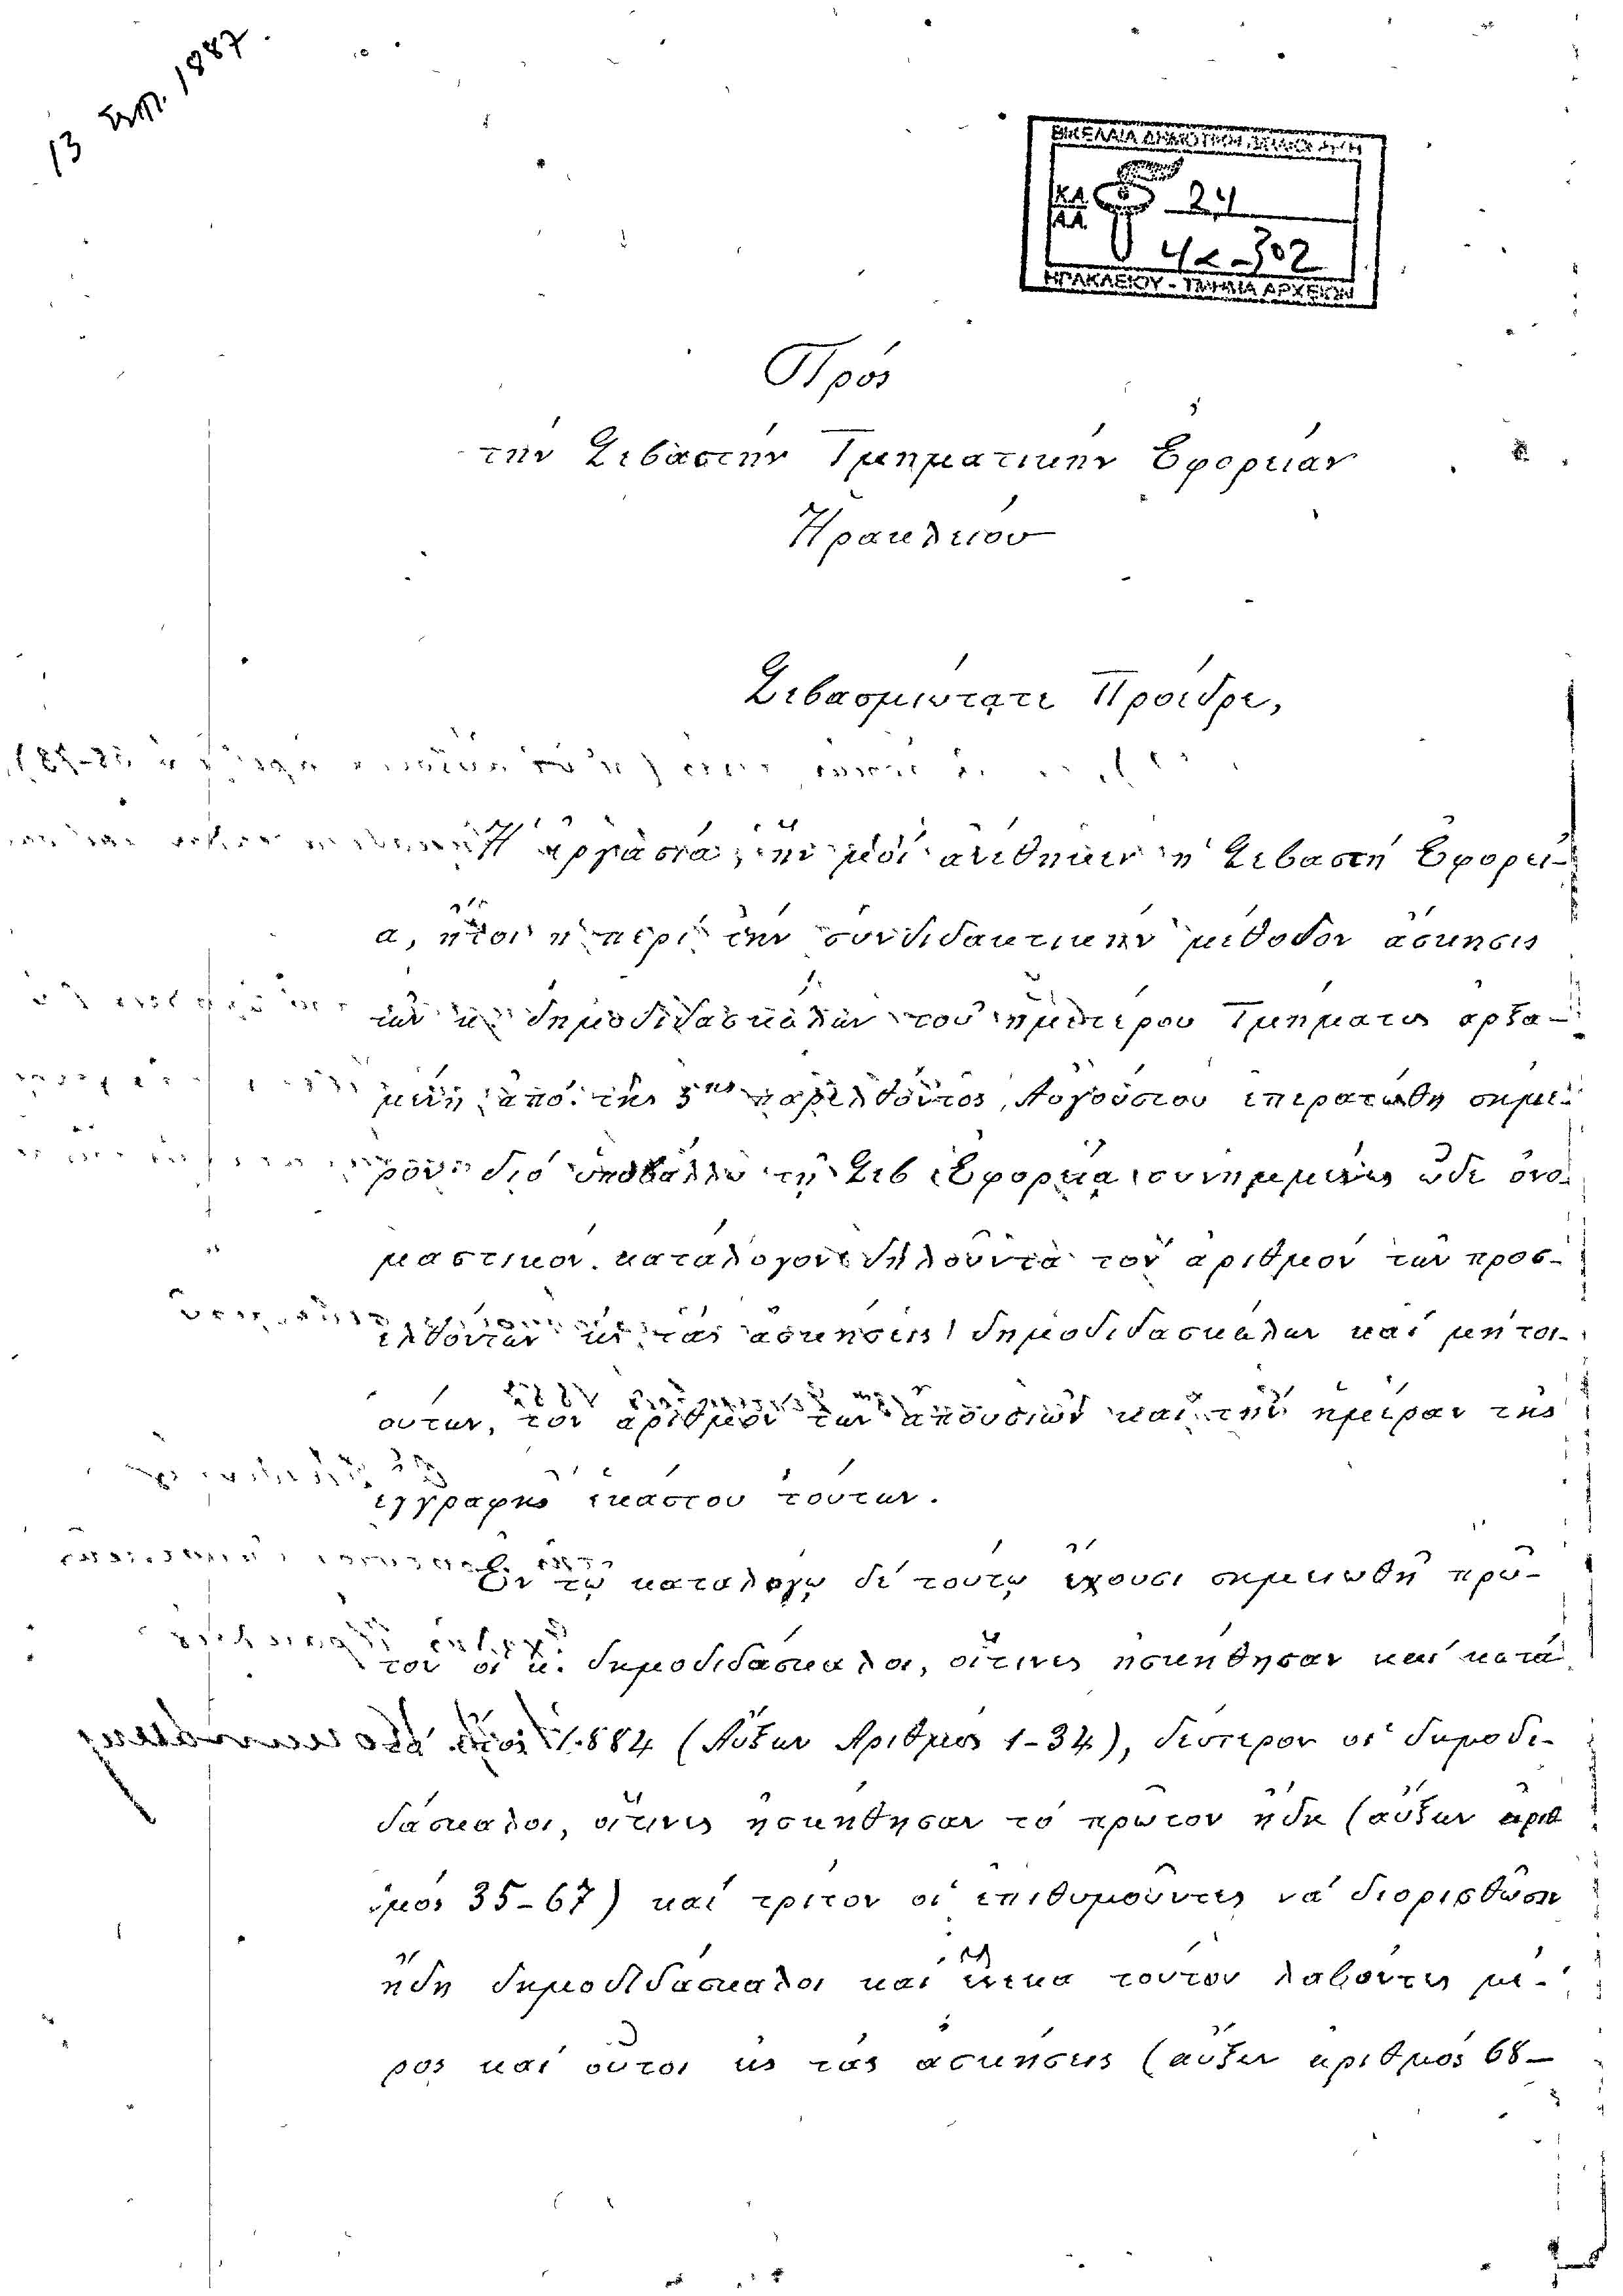 13 Σεπ. 1887.
ΒΙΚΕΛΑΙΑ ΔΗΜΟΤΙΚΗ ΒΙΒΛΙΟΘΗΚΗ
Κ.Α. 24
Α.Α. 4α-302
ΗΡΑΚΛΕΙΟΥ - ΤΜΗΜΑ ΑΡΧΕΙΩΝ
Πρός
τήν Σεβαστήν Τμηματικήν Ἐφορείαν
Ἡρακλείου
Σεβασμιώτατε Πρόεδρε,
Ἡ ἐργασία, ἥν μοί ἀνέθηκεν ἡ Σεβαστή Ἐφορεί-
α, ἤτοι ἡ περί τήν συνδιδακτικήν μέθοδον ἄσκησις
τῶν κ. δημοδιδασκάλων τοῦ ἡμετέρου Τμήματος ἀρξα-
μένη ἀπό τῆς 3ης παρελθόντος Αὐγούστου ἐπερατώθη σήμε-
ρον· διό ὑποβάλλω τῇ Σεβ Ἐφορείᾳ συνημμένως ὧδε ὀνο-
μαστικόν κατάλογον δηλοῦντα τόν ἀριθμόν τῶν προσ-
ελθόντων εἰς τάς ἀσκήσεις δημοδιδασκάλων καί μή τοι-
ούτων, τόν ἀριθμόν τῶν ἀπουσιῶν καί τήν ἡμέραν τῆς
ἐγγραφῆς ἑκάστου τούτων.
Ἐν τῷ καταλόγῳ δέ τούτῳ ἔχουσι σημειωθῆ πρῶ-
τον οἱ κ. δημοδιδάσκαλοι, οἵτινες ἠσκήθησαν καί κατά
τό ἔτος 1884 (Αὔξων Ἀριθμός 1-34), δεύτερον οἱ δημοδι-
δάσκαλοι, οἵτινες ἠσκήθησαν τό πρῶτον ἤδη (αὔξων ἀριθ
μός 35-67) καί τρίτον οἱ ἐπιθυμοῦντες νά διορισθῶσιν
ἤδη δημοδιδάσκαλοι καί ἕνεκα τούτου λαβόντες μέ-
ρος καί οὗτοι εἰς τάς ἀσκήσεις (αὔξων ἀριθμός 68-